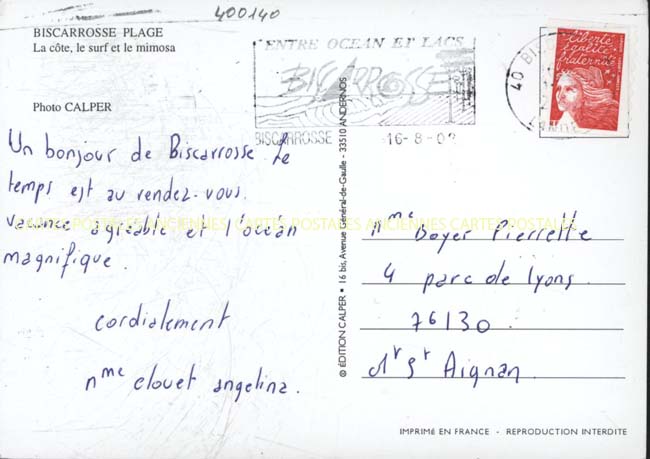 400140
BISCARROSSE PLAGE
La côte, le surf et le mimosa
Photo CALPER
ENTRE OCEAN ET LACS
BISCARROSSE
BISCARROSSE
16-8-02
40 BIS
liberté
égalité
fraternité
Un bonjour de Biscarrosse le
temps est au rendez-vous.
vacance agréable et l'océan
magnifique.
cordialement
Mme clouet angelina.
© ÉDITION CALPER • 16 bis, Avenue Général-de-Gaulle - 33510 ANDERNOS
CARTES POSTALES ANCIENNES CARTES POSTALES
Mme Boyer Pierrette
4 parc de Lyons
76130
Mt St Aignan
IMPRIMÉ EN FRANCE - REPRODUCTION INTERDITE